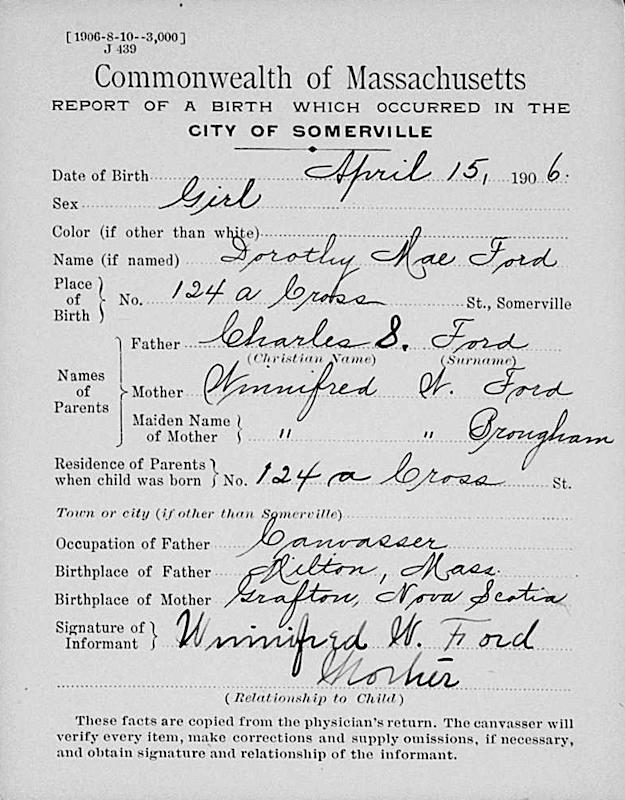 [1906-8-10--3,000]
J 439
Commonwealth of Massachusetts
REPORT OF A BIRTH WHICH OCCURRED IN THE
CITY OF SOMERVILLE
Date of Birth April 15, 1906.
Sex Girl
Color (if other than white)
Name (if named) Dorothy Mae Ford
Place of Birth } No. 124 a Cross St., Somerville
Names of Parents } Father Charles S. Ford
(Christian Name) (Surname)
Mother Winnifred W. Ford
Maiden Name of Mother { " " Brougham
Residence of Parents when child was born } No. 124 a Cross St.
Town or city (if other than Somerville)
Occupation of Father Canvasser
Birthplace of Father Milton, Mass.
Birthplace of Mother Grafton, Nova Scotia
Signature of Informant } Winnifred W. Ford
Mother
(Relationship to Child)
These facts are copied from the physician's return. The canvasser will
verify every item, make corrections and supply omissions, if necessary,
and obtain signature and relationship of the informant.